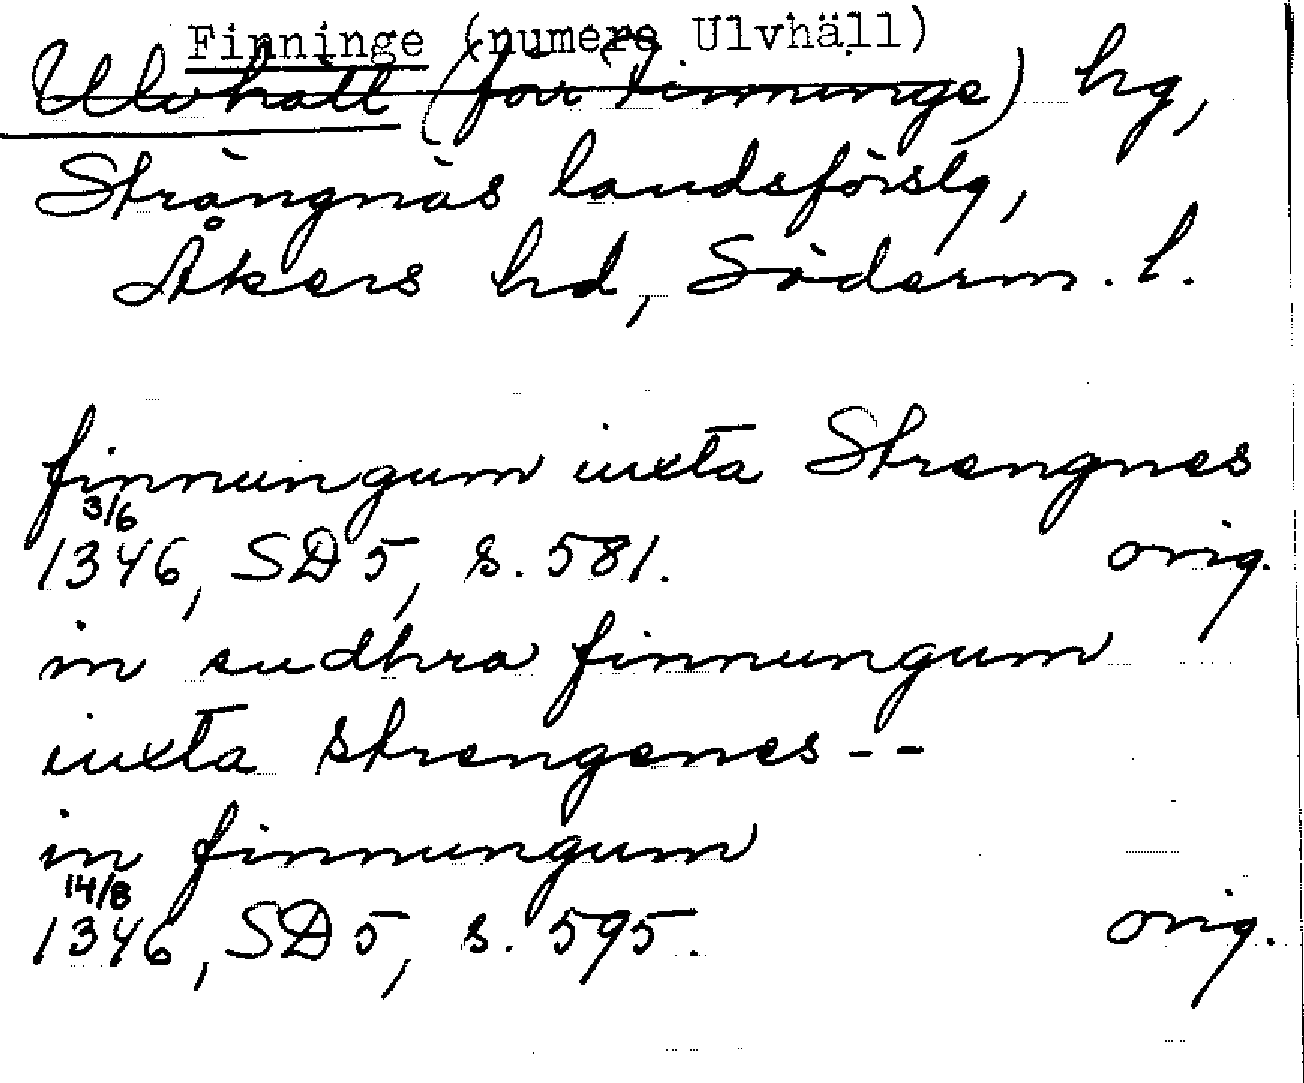 Finninge (numera Ulvhäll)
Ulvhäll (förr Finninge) hg,
Strängnäs landsförslg,
Åkers hd, Söderm. l.
finnungum iuxta Strengnes
3/6
1346, SD 5, s. 581. orig.
in sudhra finnungum
iuxta strengenes --
in finnungum
14/8
1346, SD 5, s. 595. orig.